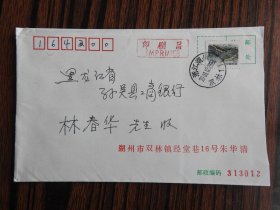 164200
印刷品
IMPRIMES
邮
处
黑龙江省
孙吴县工商银行
林春华 先生 收
湖州市双林镇经堂巷16号朱华清
邮政编码 313012